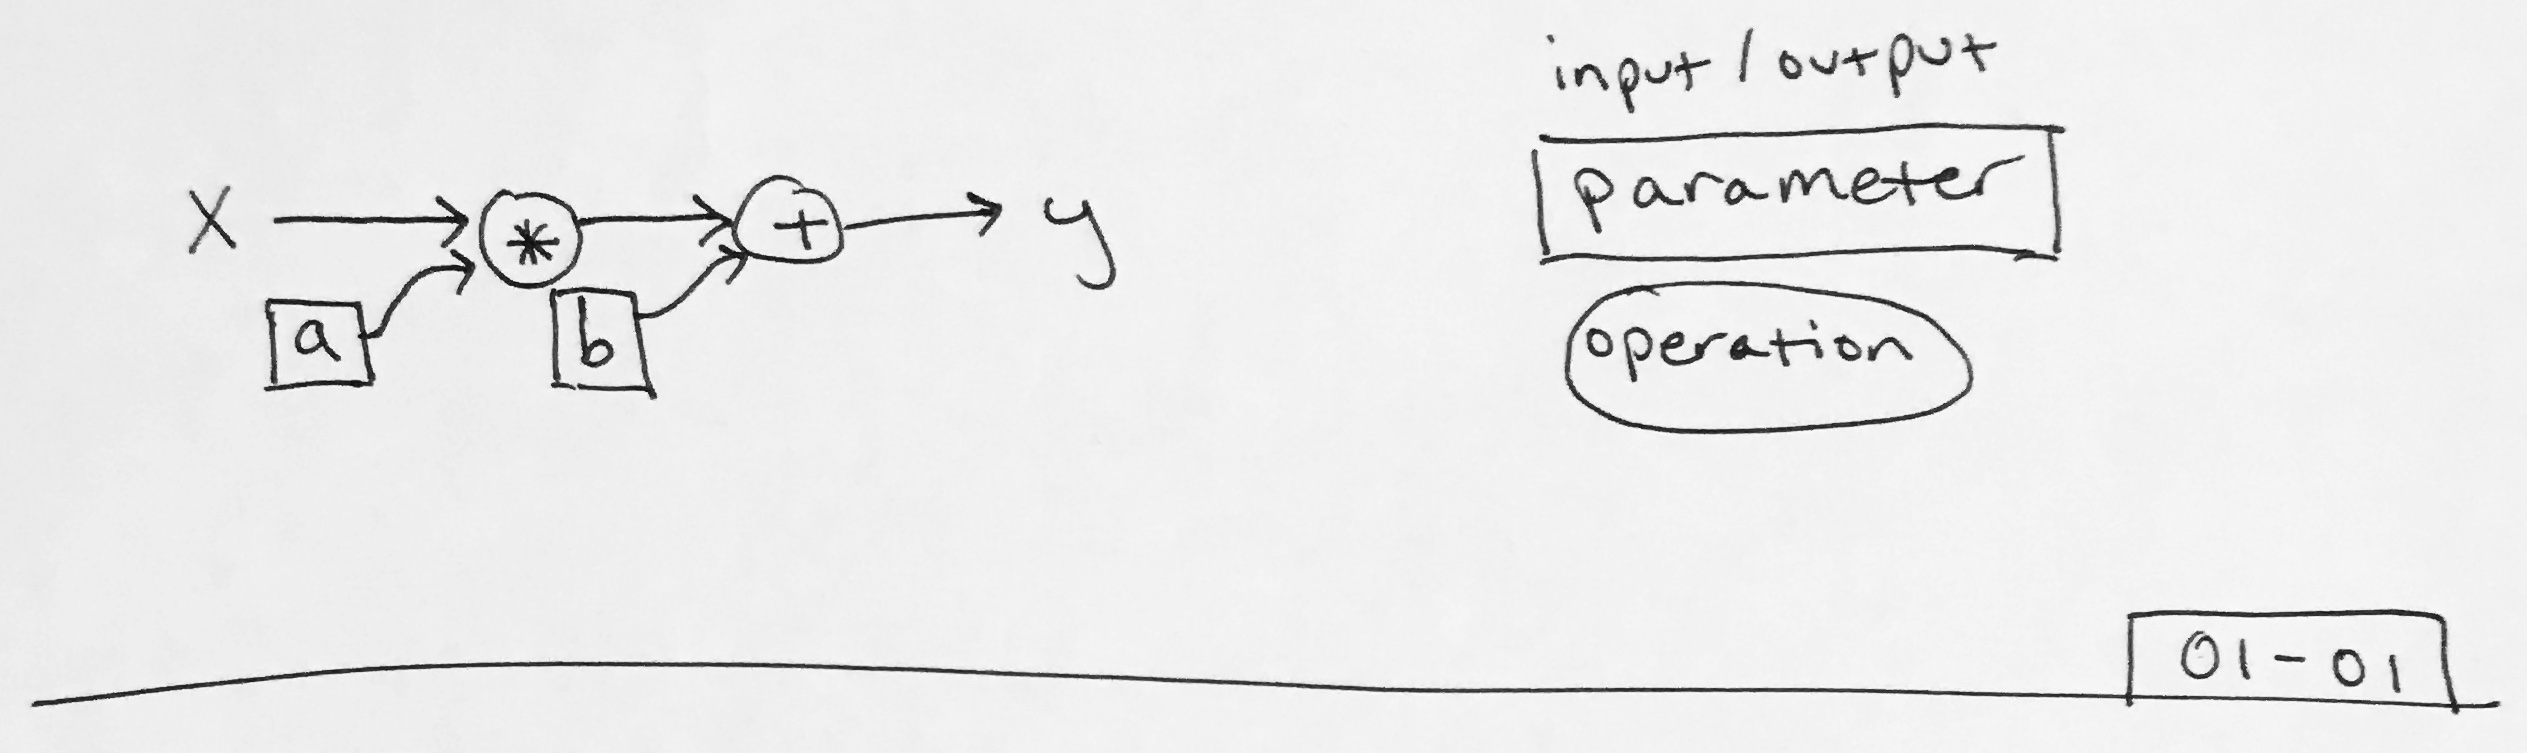 X * + y
a b
input / output
parameter
operation
01-01